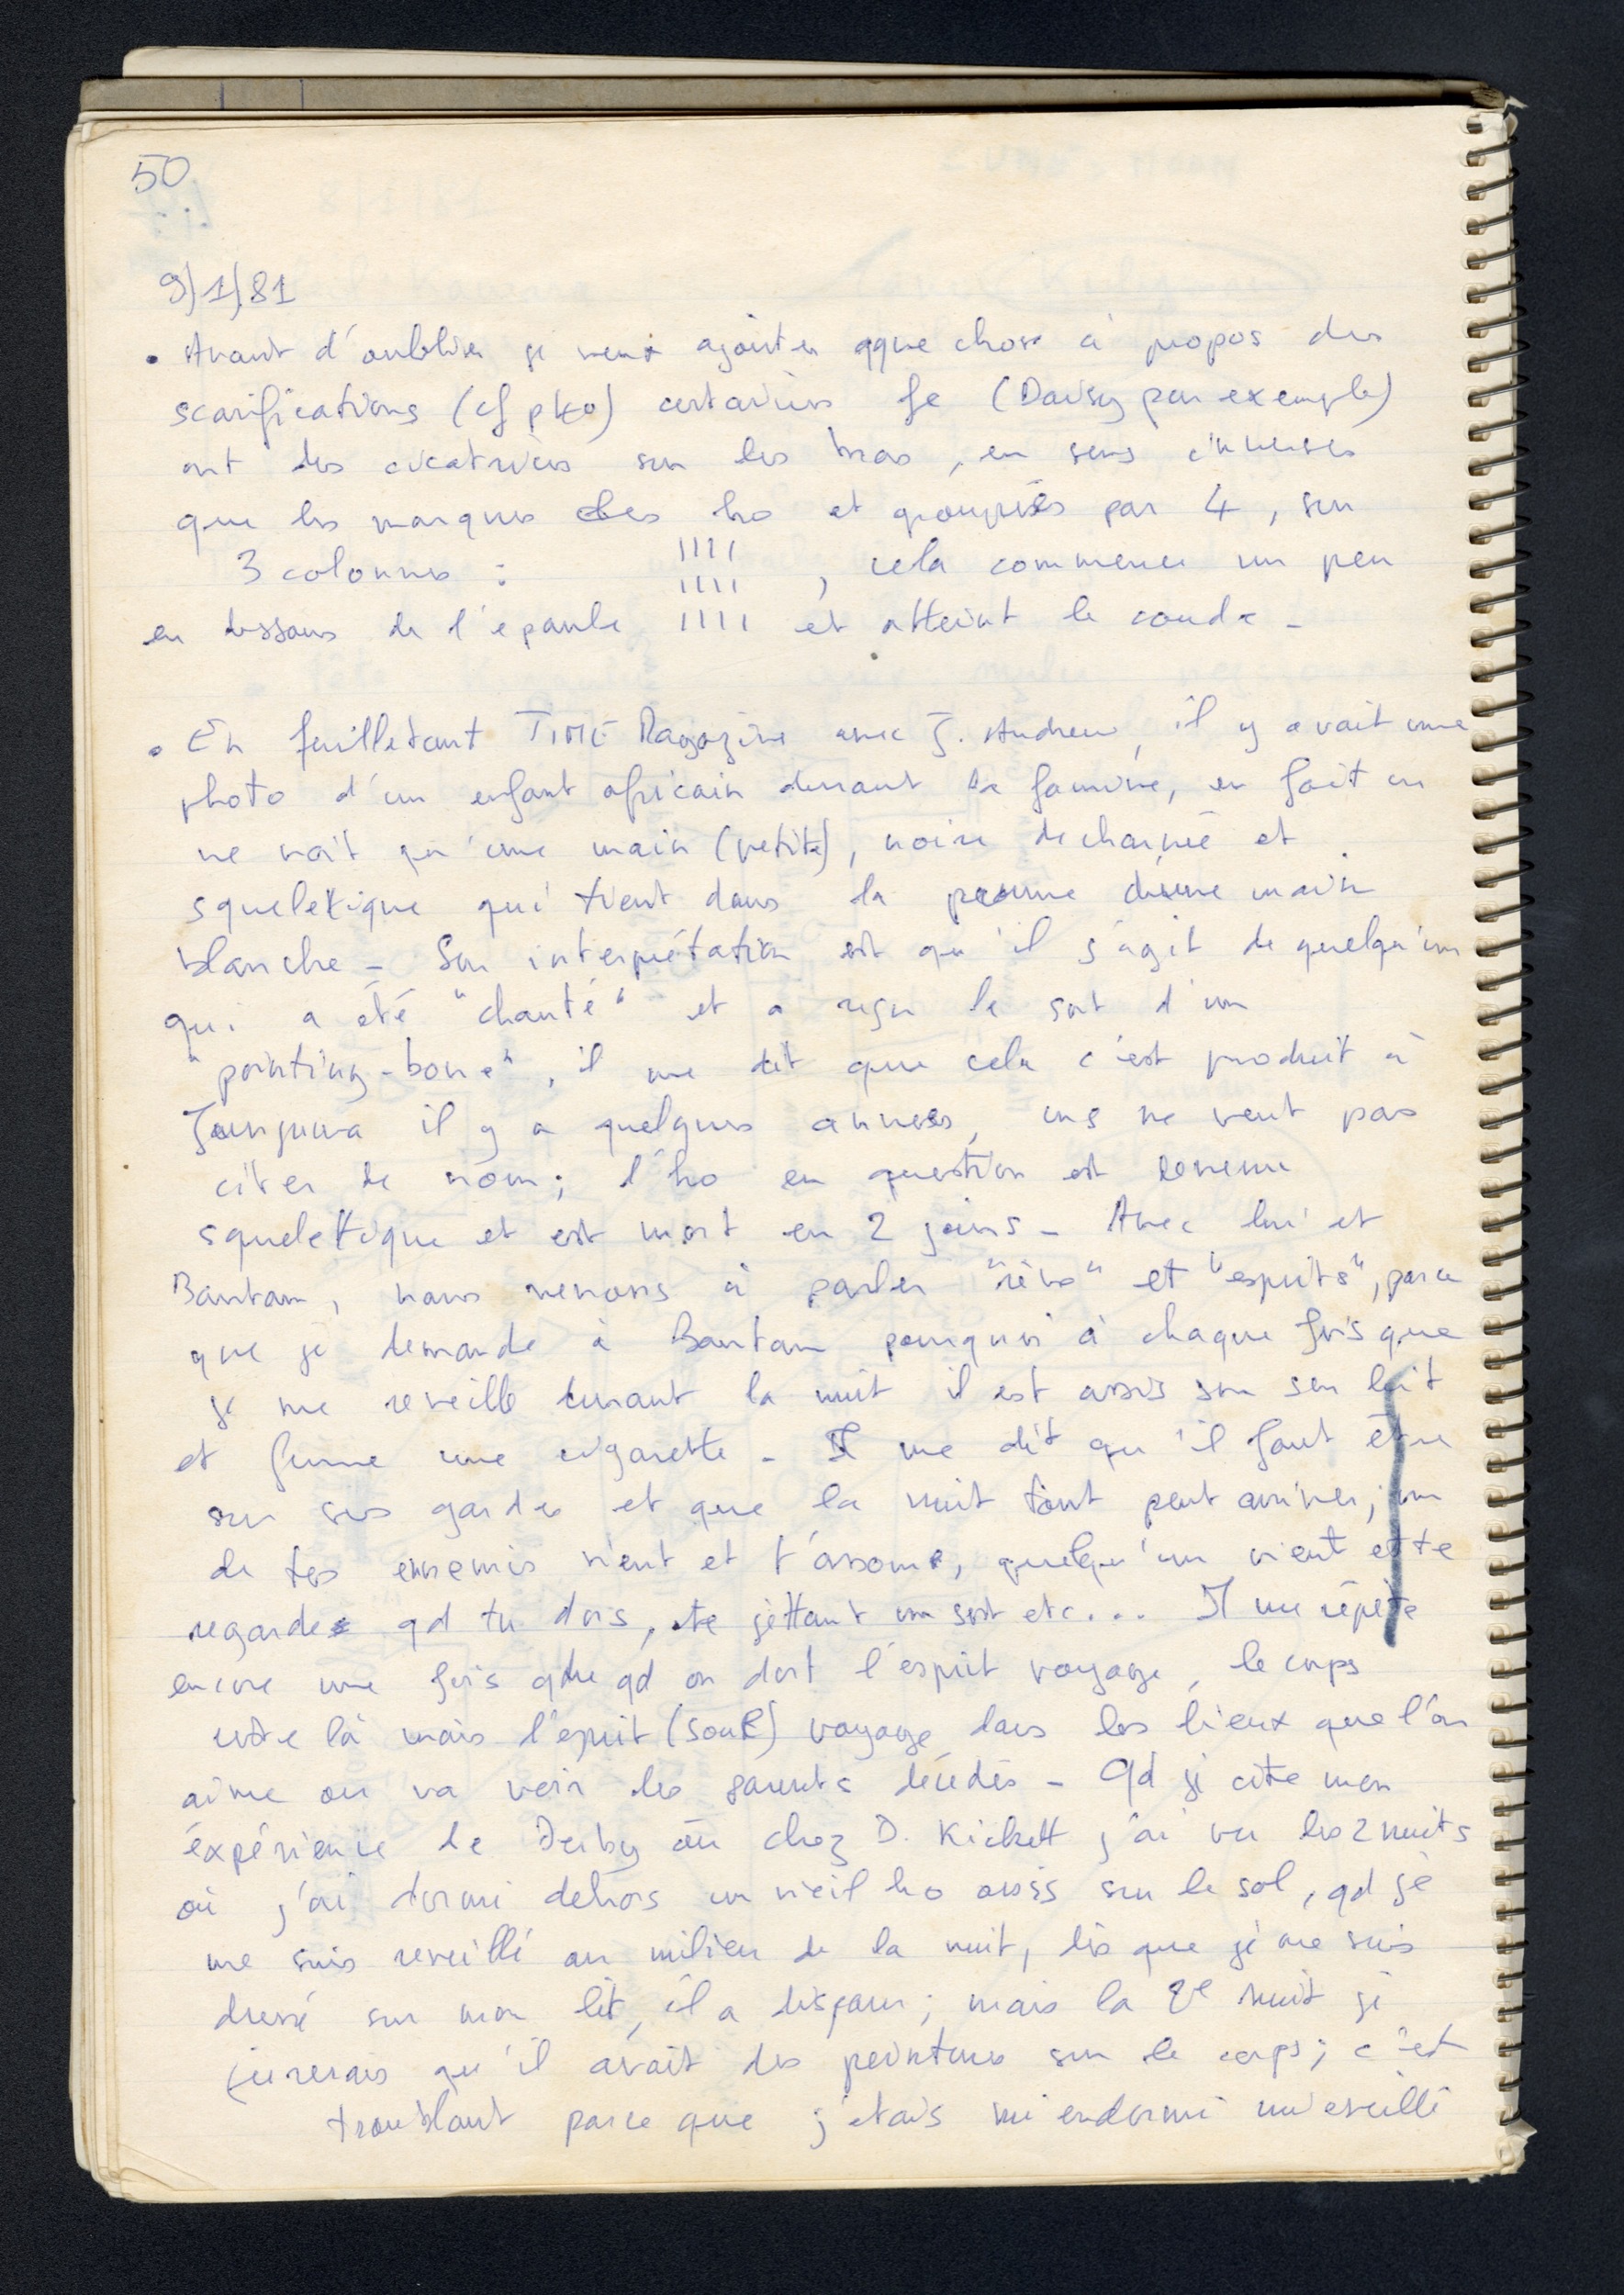 50
9/1/81
• Avant d'oublier je veux ajouter qque chose à propos des
scarifications (cf p40) certaines fe (Daisy par exemple)
ont des cicatrices sur les bras, en sens inverses
que les marques des ho et groupées par 4, sur
3 colonnes : |||| , cela commence un peu
||||
en dessous de l'epaule |||| et atteint le coude -
• En feuilletant TIME Magazine avec J. Andrew, il y avait une
photo d'un enfant africain durant la famine, en fait on
ne voit qu'une main (petite), noire decharnée et
squeletique qui tient dans la paume d'une main
blanche - Son interprétation est qu'il s'agit de quelqu'un
qui a été "chanté" et a reçu le sort d'un
"pointing-bone", il me dit que cela c'est produit à
il y a quelques années, ms ne veut pas
citer de nom; l'ho en question est devenu
squelettique et est mort en 2 jours - Avec lui et
Bantam, nous venons à parler "rêve" et "esprits", parce
que je demande à Bantam pourquoi à chaque fois que
je me reveille durant la nuit il est assis sur son lit
et fume une cigarette - Il me dit qu'il faut être
sur ses gardes et que la nuit tout peut arriver; un
de tes ennemis vient et t'assome, quelqu'un vient et te
regarde qd tu dors, te jettant un sort etc... Il me répète
encore une fois que qd on dort l'esprit voyage, le corps
reste là mais l'esprit (soul) voyage dans les lieux que l'on
aime ou va voir les parents décédés - Qd je cite mon
éxpérience de Derby où chez D. Kickett j'ai vu les 2 nuits
où j'ai dormi dehors un vieil ho assis sur le sol, qd je
me suis reveillé au milieu de la nuit, dès que je me suis
dressé sur mon lit, il a disparu; mais la 2e nuit je
jurerais qu'il avait des peintures sur le corps; c'est
troublant parce que j'etais mi endormi mi eveillé